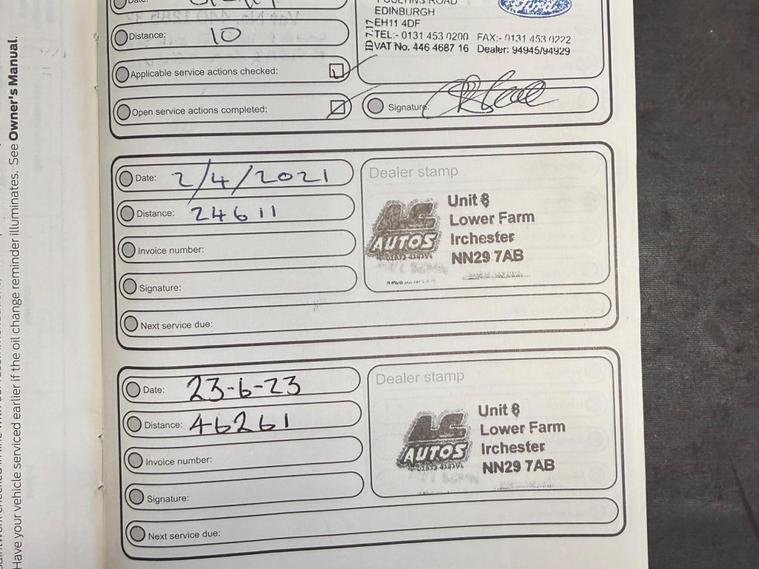 Have your vehicle serviced earlier if the oil change reminder illuminates. See Owner's Manual.
Distance: 10
Applicable service actions checked:
Open service actions completed:
EDINBURGH
EH11 4DF
TEL:- 0131 453 0200 FAX:- 0131 453 0222
VAT No. 446 4687 16 Dealer: 94945/94929
Ford
Signature:
Date: 2/4/2021
Distance: 24611
Invoice number:
Signature:
Next service due:
Dealer stamp
A.C.
AUTOS
Unit 8
Lower Farm
Irchester
NN29 7AB
Date: 23-6-23
Distance: 46261
Invoice number:
Signature:
Next service due:
Dealer stamp
A.C.
AUTOS
Unit 8
Lower Farm
Irchester
NN29 7AB